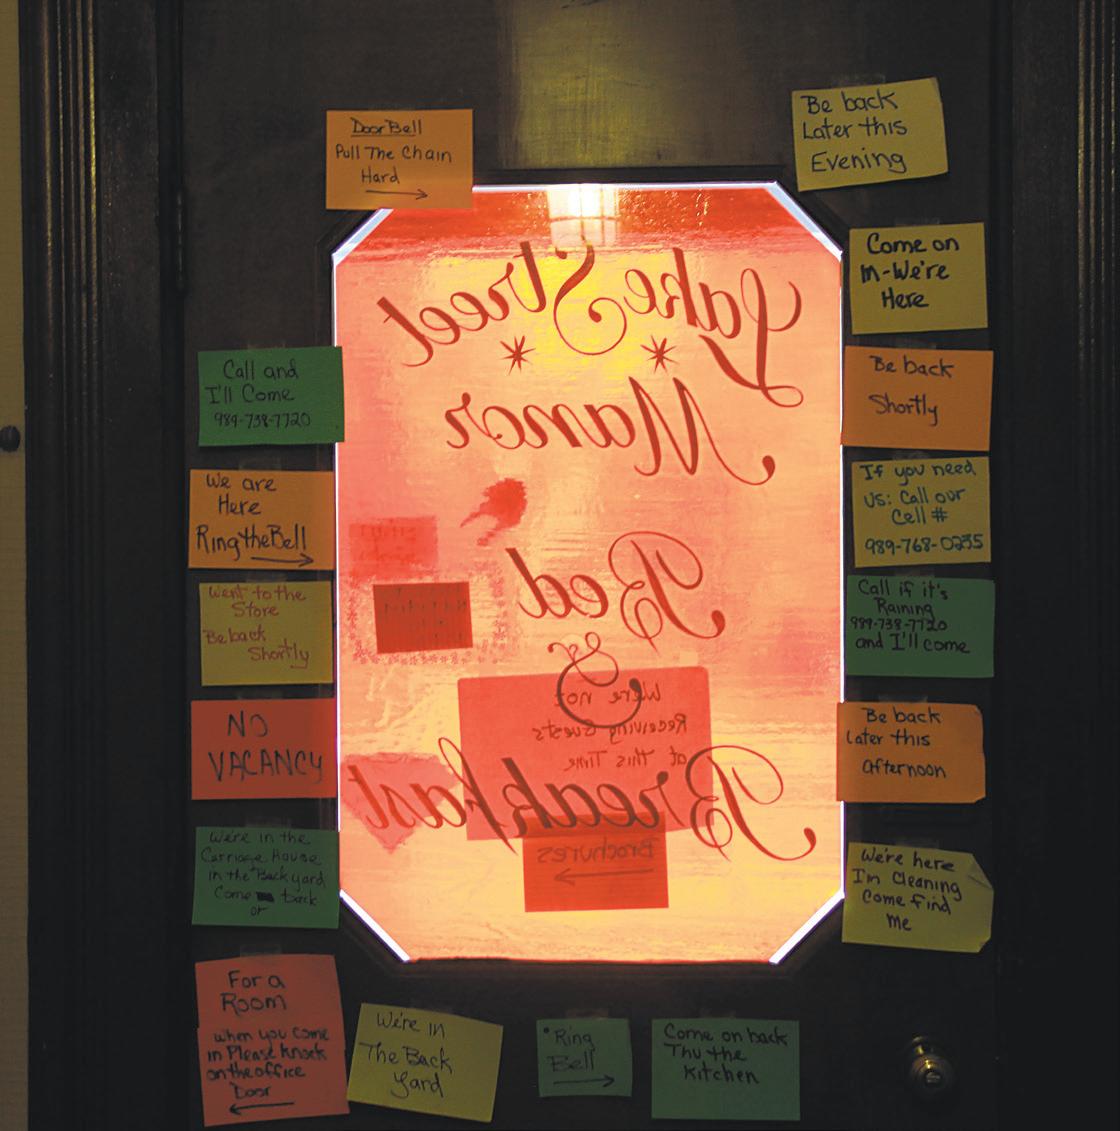 Door Bell
Pull The Chain
Hard
Be back
Later this
Evening
Come on
In-We're
Here
Lake Street
Manor
Bed
&
Breakfast
We're not
Receiving Guests
at this Time
Brochures
Call and
I'll Come
989-738-7720
Be back
Shortly
We are
Here
Ring the Bell
If you need
us: Call our
Cell #
989-768-0235
Went to the
Store
Be back
Shortly
Call if it's
Raining
989-738-7720
and I'll come
NO
VACANCY
Be back
Later this
Afternoon
We're in the
Carriage House
in the Back yard
Come back
or
We're here
I'm Cleaning
Come find
Me
For a
Room
when you come
in Please knock
on the office
Door
We're In
The Back
Yard
Ring
Bell
Come on back
Thu the
Kitchen